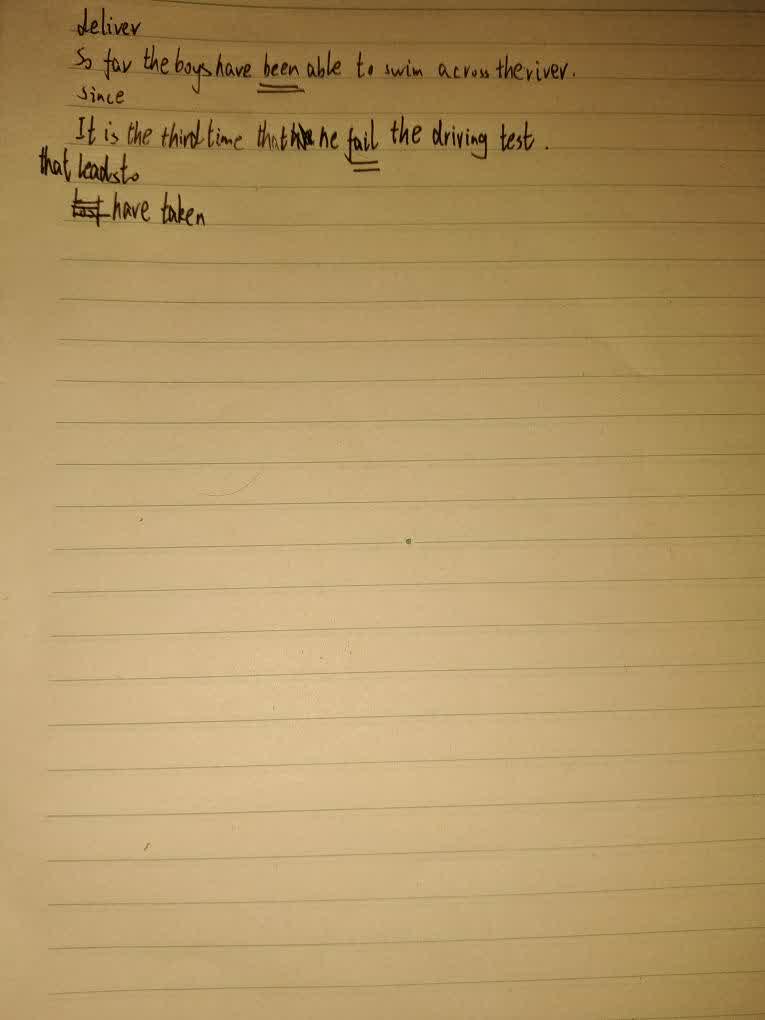 deliver
So far the boys have been able to swim across the river.
since
It is the third time that he fail the driving test.
that leads to
have taken